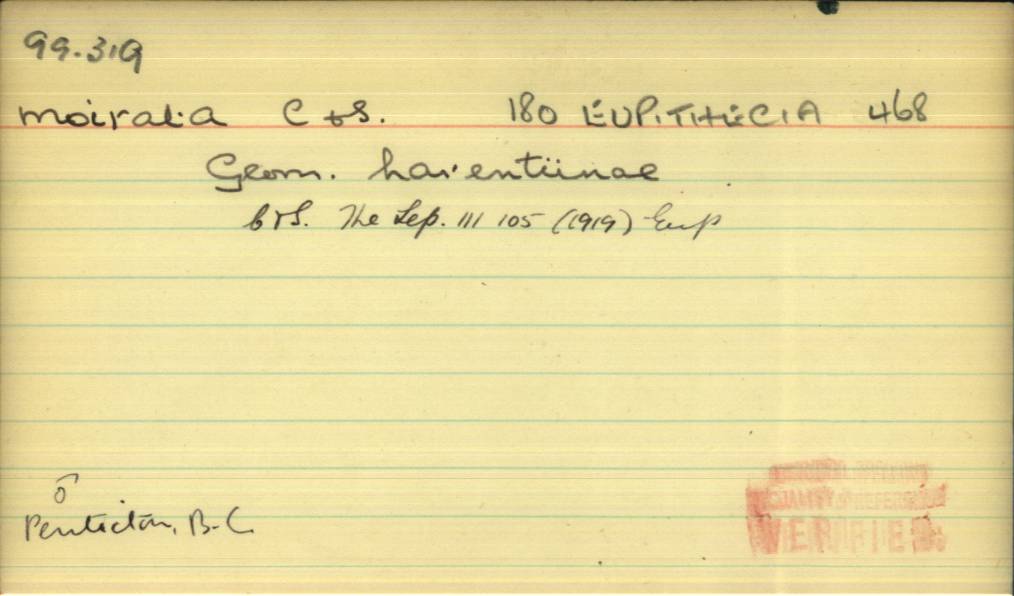 99.319
moiralia C & S. 180 EUPITHECIA 468
Geom. larentiinae
C & S. The Lep. III 105 (1919) Eup
♂
Penticton, B.C.
VERIFIED